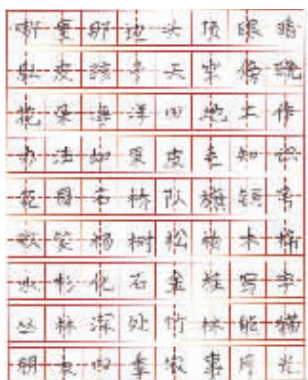 那边头顶眼睛
肚皮孩子天
海洋田地工作
办法如果皮毛知识
花园石桥队旗铜号
欢笑杨树松柏木棉
水杉化石金桂写字
丛林深处竹林熊猫
朋友四季农事月光